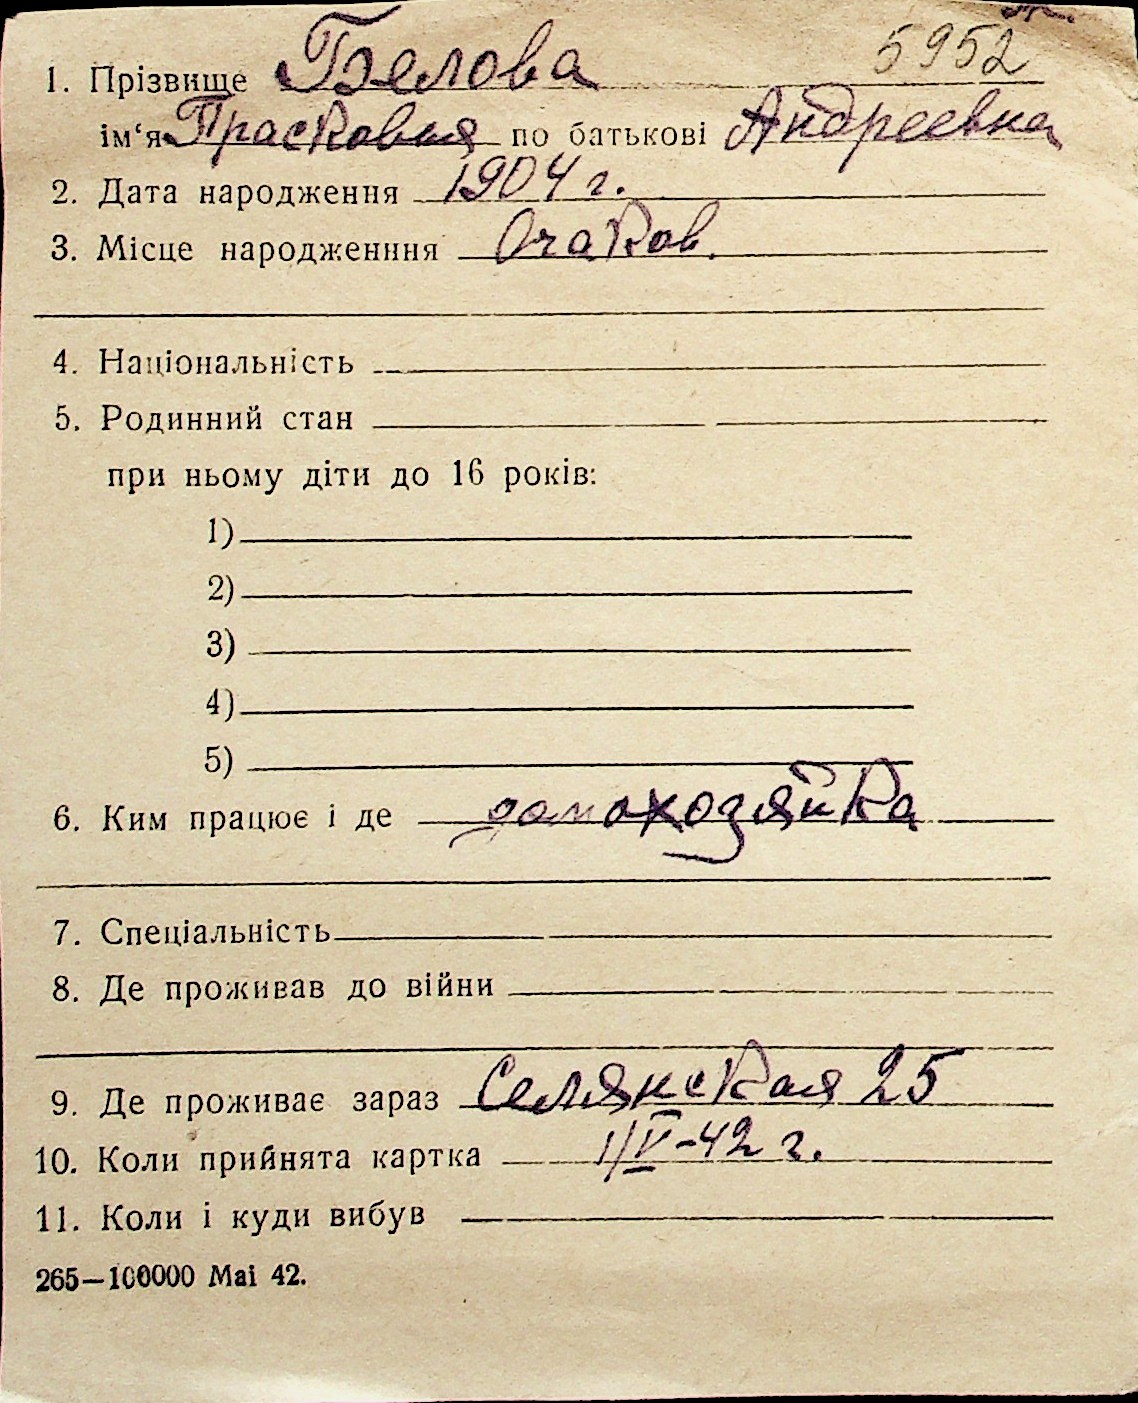 5952
1. Прізвище Белова
ім‘я Прасковия по батькові Андреевна
2. Дата народження 1904 г.
3. Місце народженння Очаков.
4. Національність
5. Родинний стан
при ньому діти до 16 років:
1)
2)
3)
4)
5)
6. Ким працює і де домохозяйка
7. Спеціальність
8. Де проживав до війни
9. Де проживає зараз Селянская 25
10. Коли прийнята картка 1/V-42 г.
11. Коли і куди вибув
265—100000 Mai 42.